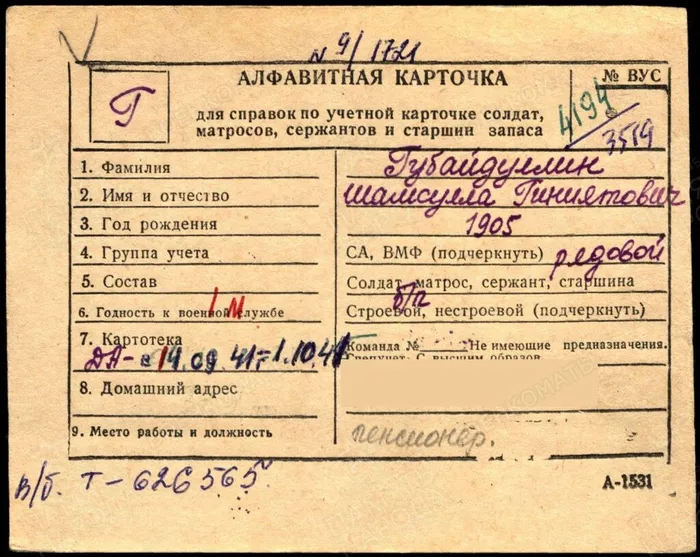 N 9/1721
АЛФАВИТНАЯ КАРТОЧКА
№ ВУС
Г
для справок по учетной карточке солдат,
матросов, сержантов и старшин запаса
4194
3519
1. Фамилия Губайдуллин
2. Имя и отчество Шамсулла Гиниятович
3. Год рождения 1905
4. Группа учета СА, ВМФ (подчеркнуть) рядовой
5. Состав Солдат, матрос, сержант, старшина
6. Годность к военной службе Строевой, нестроевой (подчеркнуть)
б/п
7. Картотека Команда № Не имеющие предназначения.
ДА- с 14.09.41-1.10.45 Спецучет. С высшим образов.
8. Домашний адрес
9. Место работы и должность пенсионер.
в/б. Т-626565
А-1531